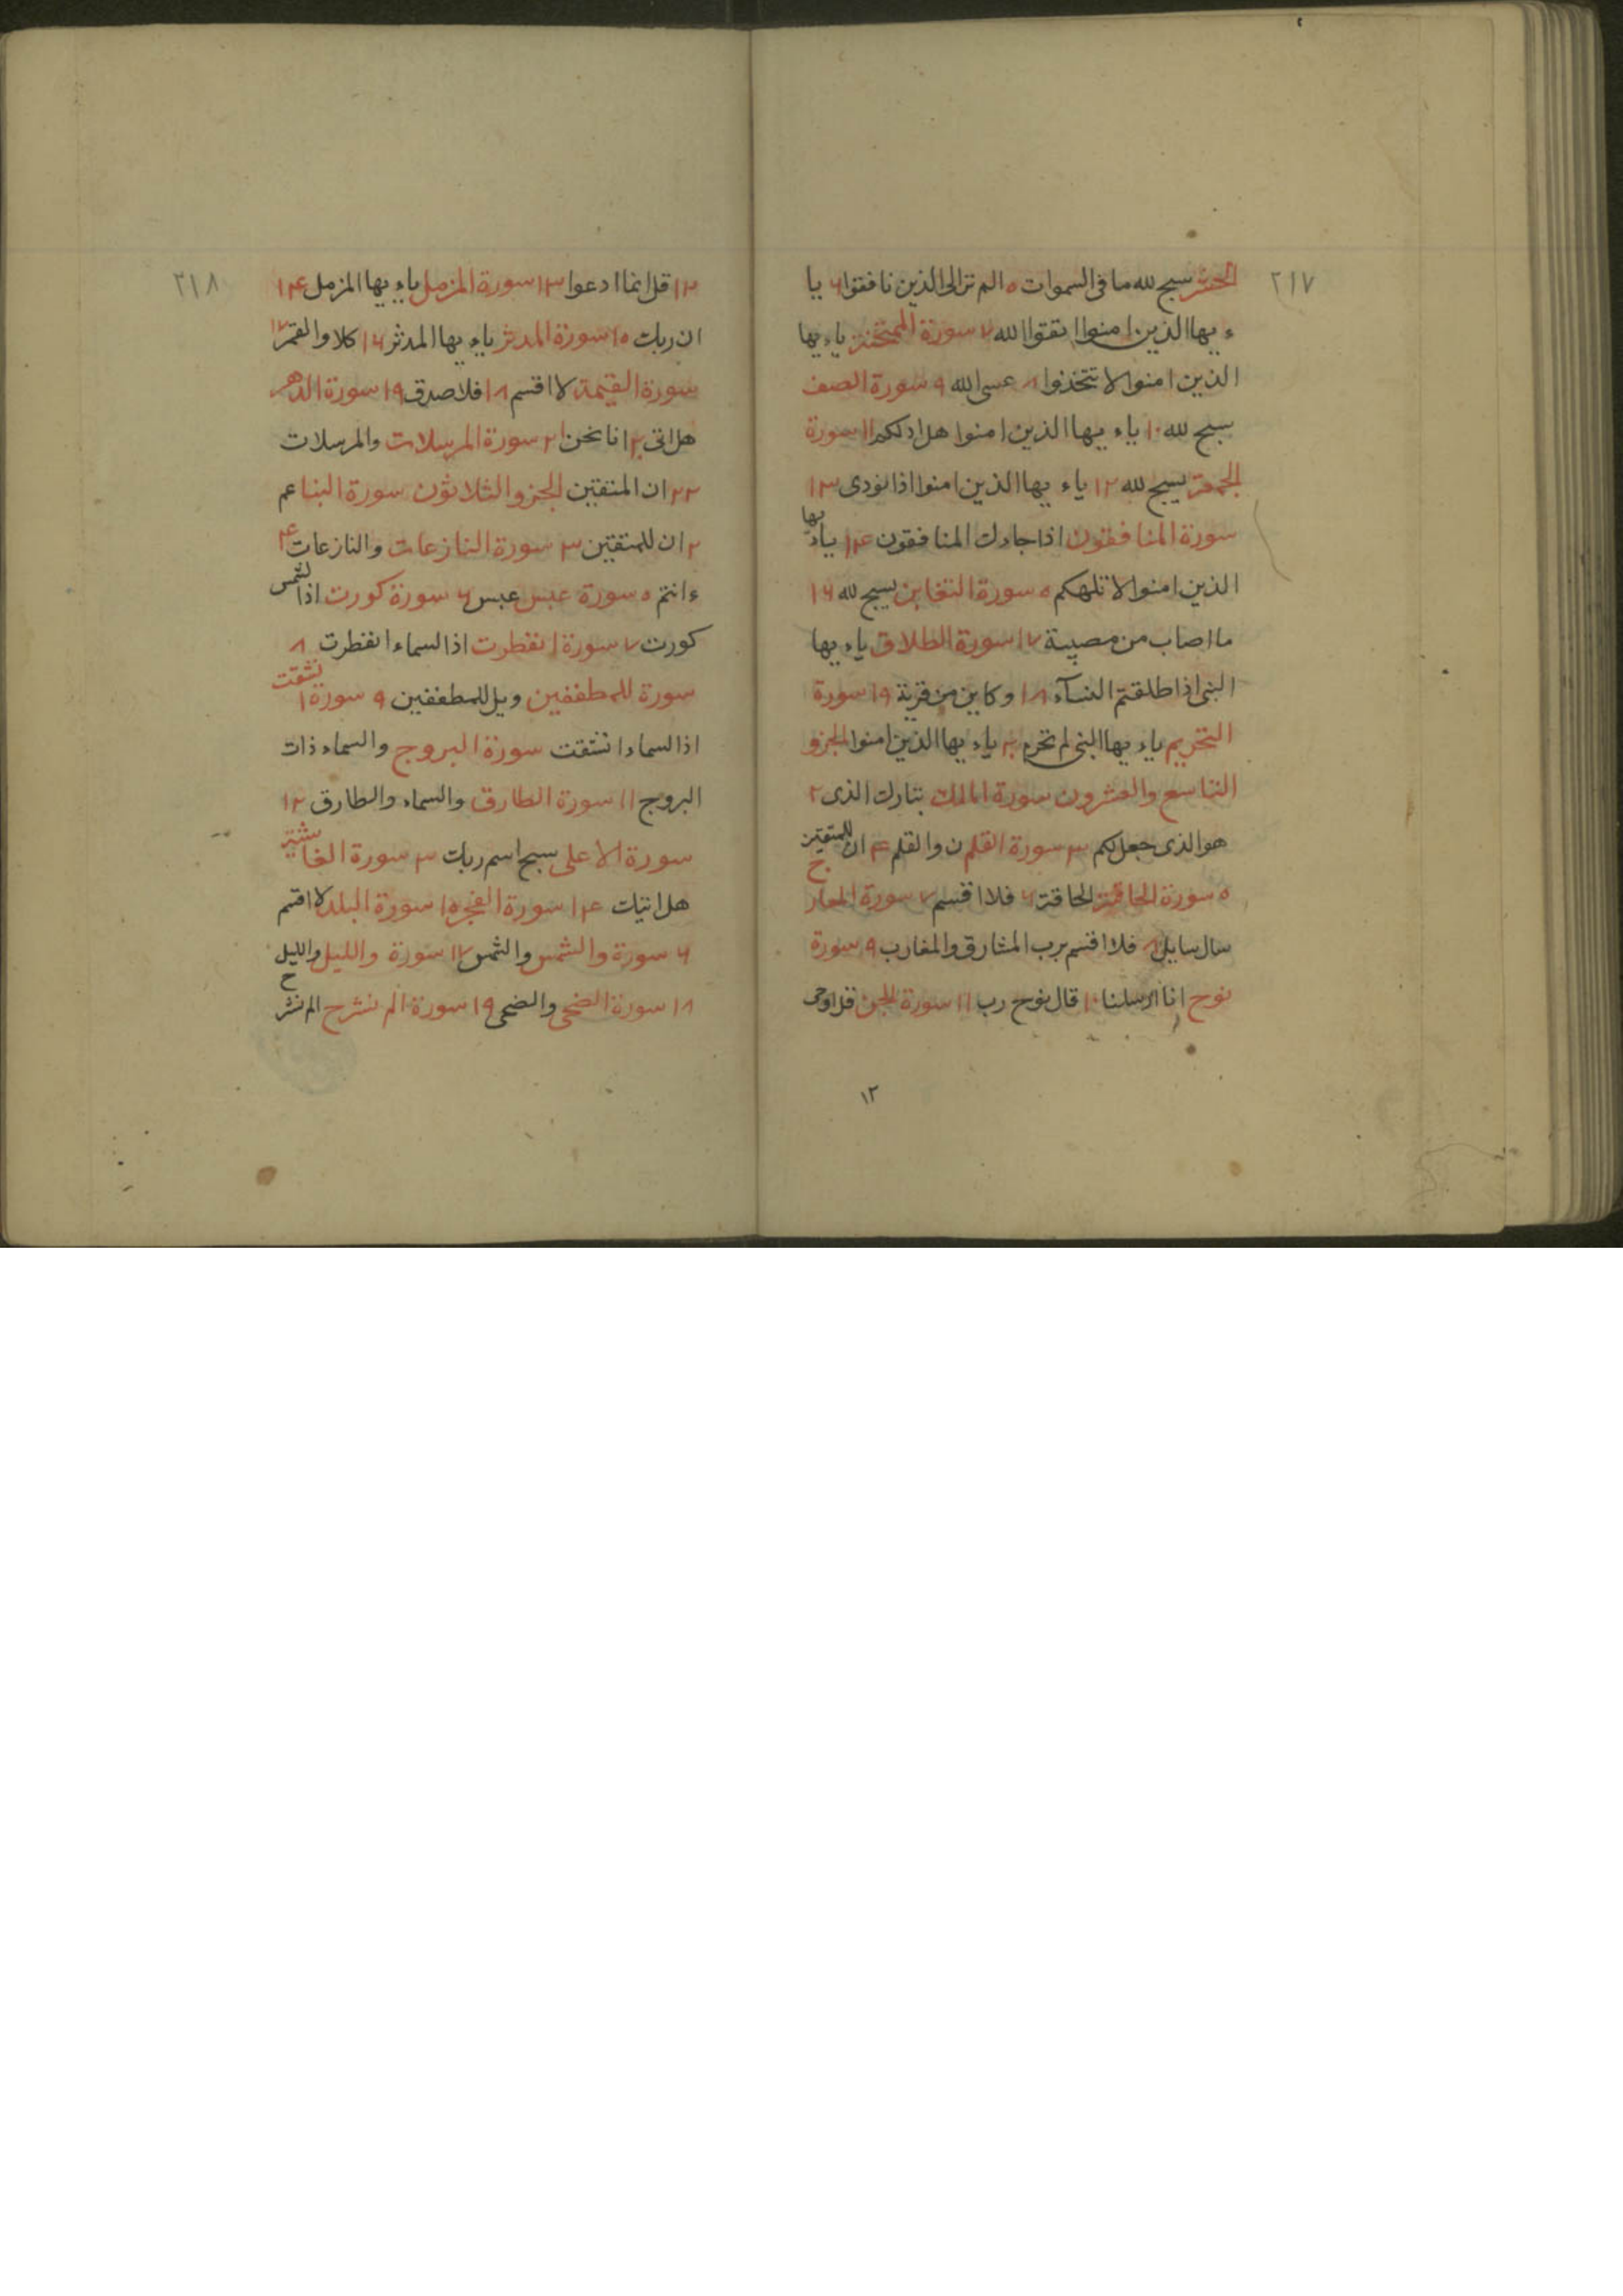 ٢١٧
الحشر سبح لله ما فى السموات ٥ الم تر الى الذين نافقوا ٦ يا
ء يها الذين امنوا اتقوا الله ٧ سورة الممتحنة ياء يها
الذين امنوا لا تتخذوا ٨ عسى الله ٩ سورة الصف
سبح لله ١٠ ياء يها الذين امنوا هل ادلكم ١١ سورة
الجمعة يسبح لله ١٢ ياء يها الذين امنوا اذا نودى ١٣
سورة المنافقون اذا جاءك المنافقون ١٤ ياء يها
الذين امنوا لا تلهكم ٥ سورة التغابن يسبح لله ١٦
ما اصاب من مصيبة ١٧ سورة الطلاق ياء يها
النبى اذا طلقتم النسآء ١٨ وكاين من قرية ١٩ سورة
التحريم ياء يها النبى لم تحرم ٢٠ ياء يها الذين امنوا الجزو
التاسع والعشرون سورة الملك تبارك الذى ٢
هو الذى جعل لكم ٣ سورة القلم ن والقلم ٤ ان للمتقين
٥ سورة الحاقة الحاقة ٦ فلا اقسم ٧ سورة المعارج
سال سايل ٨ فلا اقسم برب المشارق والمغارب ٩ سورة
نوح انا ارسلنا ١٠ قال نوح رب ١١ سورة الجن قل اوحى
١٢
٢١٨
١٢ قل انما ادعوا ١٣ سورة المزمل ياء يها المزمل ١٤
ان ربك ١٥ سورة المدثر ياء يها المدثر ١٦ كلا والقمر ١٧
سورة القيمة لا اقسم ١٨ فلا صدق ١٩ سورة الدهر
هل اتى ٢٠ انا نحن ٢١ سورة المرسلات والمرسلات
٢٢ ان المتقين الجزو الثلاثون سورة النبا عم
٢ ان للمتقين ٣ سورة النازعات والنازعات ٤
ءانتم ٥ سورة عبس عبس ٦ سورة كورت اذا الشمس
كورت ٧ سورة انفطرت اذا السماء انفطرت ٨
سورة للمطففين ويل للمطففين ٩ سورة انشقت
اذا السماء انشقت سورة البروج والسماء ذات
البروج ١١ سورة الطارق والسماء والطارق ١٢
سورة الاعلى سبح اسم ربك ٣ سورة الغاشية
هل اتيك ١٤ سورة الفجر ١٥ سورة البلد لا اقسم
٦ سورة والشمس والشمس ١٧ سورة والليل والليل
١٨ سورة الضحى والضحى ١٩ سورة الم نشرح الم نشرح